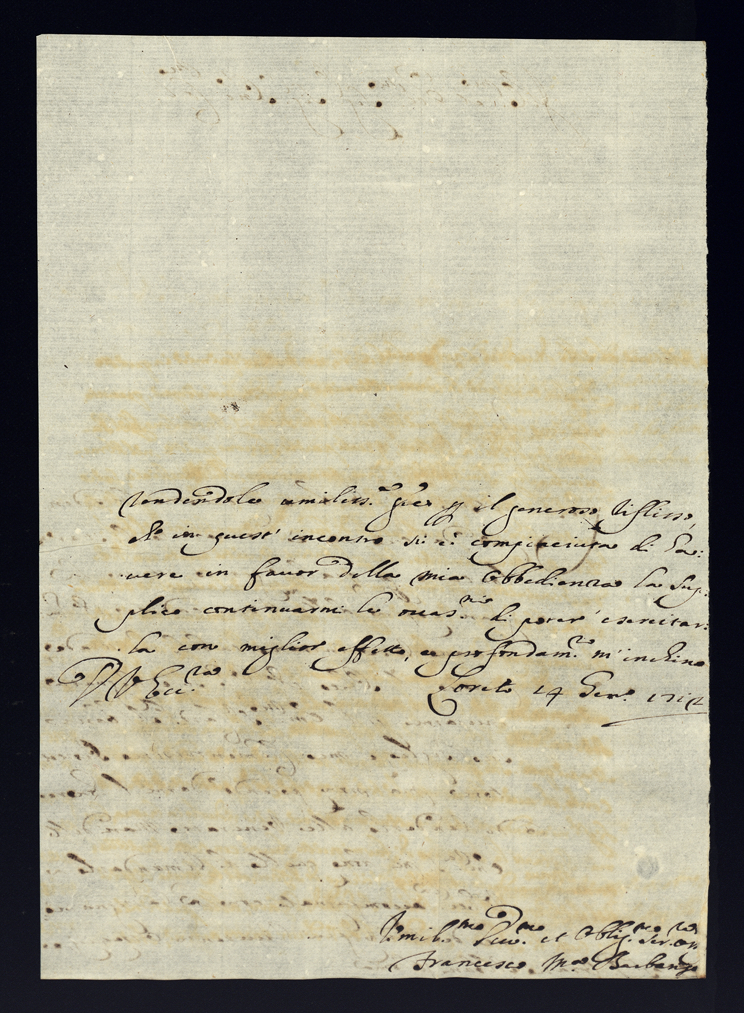 rendendole umiliss.e gr.e p il generoso riflesso,
che in quest' incontro si è compiaciuta di ha:
vere in favor della mia obbedienza la sup:
plico continuarmi le occas.ni di poter' esercitar:
la con miglior effetto, e profondam.te m'inchino
D V Ecc.za
Loreto 14 Gen.o
Umil.mo Dev.mo et Obblig.mo Ser.re
Francesco M.a